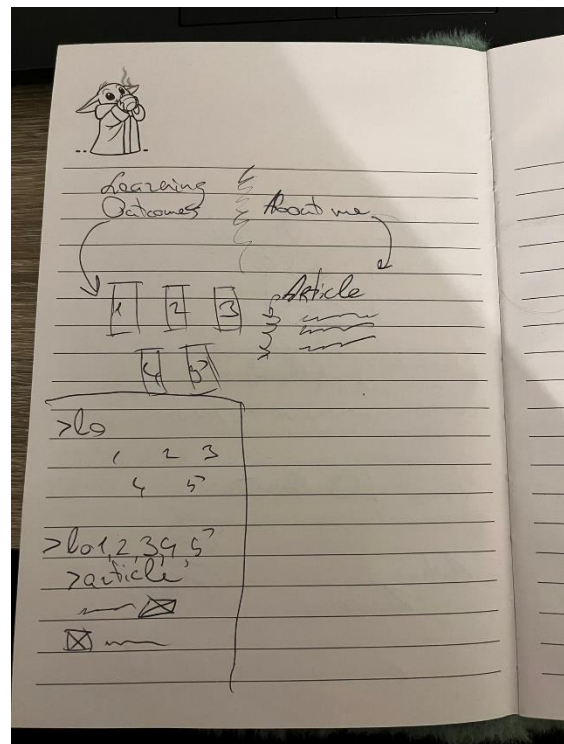 Learning
Outcomes
About me
1 2 3
Article
4 5
>lo
1 2 3
4 5
>lo1,2,3,4,5
>article